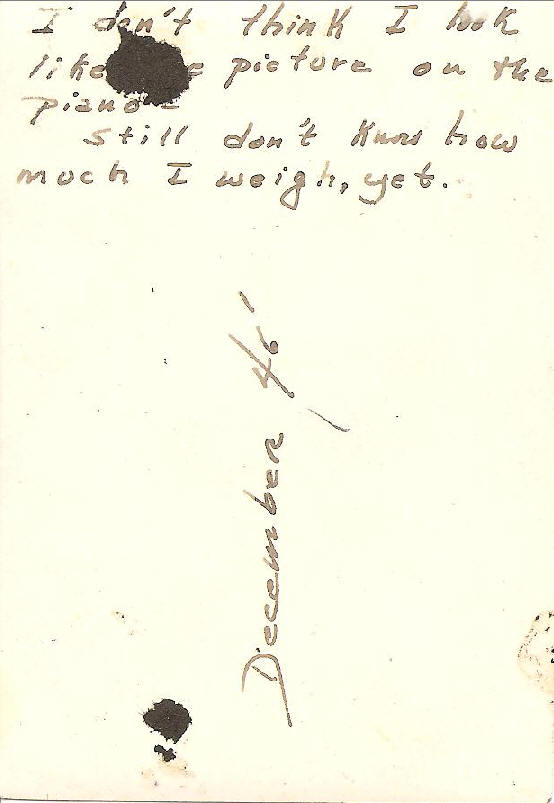 I don't think I look
like picture on the
piano
Still don't know how
much I weigh, yet.
December, 46'